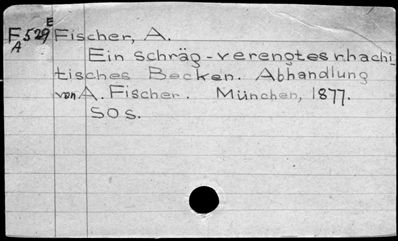 E
F529 Fischer, A.
A
Ein schräg-verengtes rhachi
tisches Becken. Abhandlung
von A. Fischer. München, 1877.
50 s.